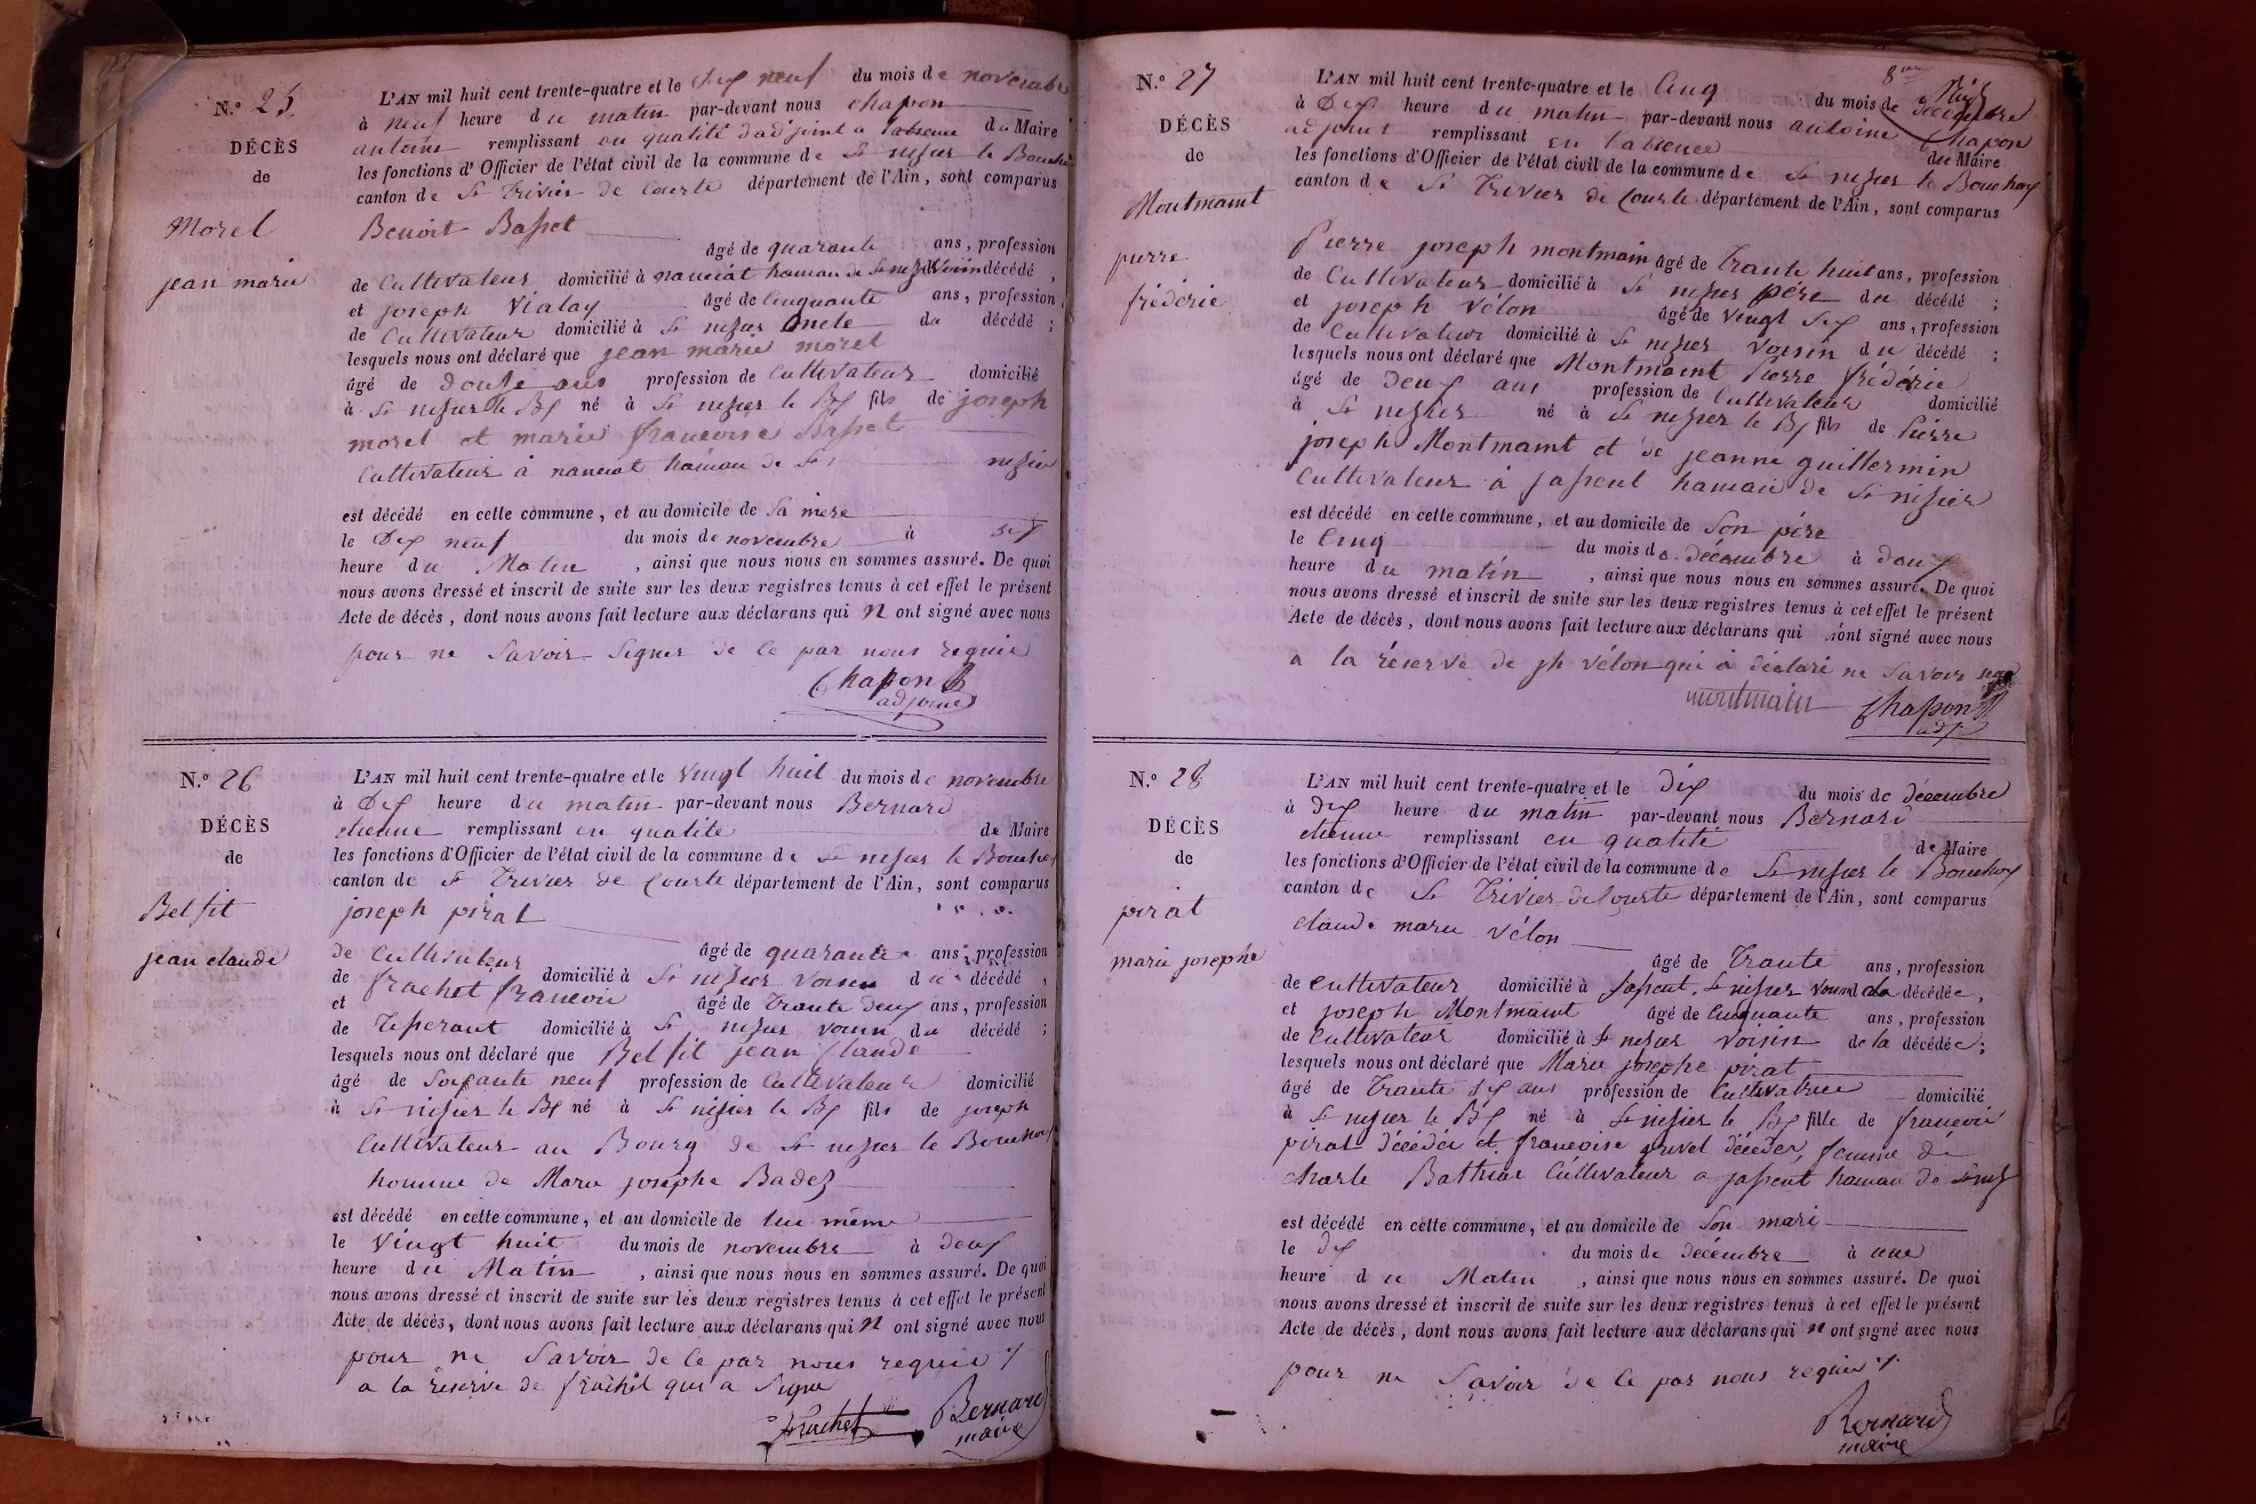 N.° 25.
DÉCÈS
de
Morel
jean marie
L'AN mil huit cent trente-quatre et le dix neuf du mois de novembre
à neuf heure du matin par-devant nous chapon
antoine remplissant en qualité dadjoint a labsence du Maire
les fonctions d'Officier de l'état civil de la commune de St nisier le Bouchoux
canton de St Trivier de Courte département de l'Ain, sont comparus
Benoit Basset
âgé de quarante ans, profession
de Cultivateur domicilié à nanciat hamau de St nizier Voisin décédé,
et joseph Vialay âgé de Cinquante ans, profession
de Cultivateur domicilié à St nizier oncle du décédé;
lesquels nous ont déclaré que jean marie morel
âgé de douse ans profession de Cultivateur domicilié
à St nizier le Bx né à St nizier le Bx fils de joseph
morel et marie francoise Basset
Cultivateur à nanciat hamau de St nizier
est décédé en cette commune, et au domicile de Sa mere
le Dix neuf du mois de novembre à six
heure du Matin, ainsi que nous nous en sommes assuré. De quoi
nous avons dressé et inscrit de suite sur les deux registres tenus à cet effet le présent
Acte de décès, dont nous avons fait lecture aux déclarans qui n ont signé avec nous
pour ne Savoir Signer de ce par nous requis
Chapon
adjoint
N.° 26
DÉCÈS
de
Belfit
jean claude
L'AN mil huit cent trente-quatre et le vingt huit du mois de novembre
à Dix heure du matin par-devant nous Bernard
etienne remplissant en qualité de Maire
les fonctions d'Officier de l'état civil de la commune de St nizier le Bouchoux
canton de St Trivier de Courte département de l'Ain, sont comparus
joseph pirat
âgé de quarante ans, profession
de Cultivateur domicilié à St nizier voisin du décédé,
et frachet francois âgé de Trante deux ans, profession
de Tisserant domicilié à St nizier voisin du décédé;
lesquels nous ont déclaré que Belfit jean Claude
âgé de Soixante neuf profession de Cultivateur domicilié
à St nizier le Bx né à St nizier le Bx fils de joseph
Cultivateur au Bourg de St nizier le Bouchoux
homme de Marie josephe Badez
est décédé en cette commune, et au domicile de lui même
le Vingt huit du mois de novembre à deux
heure du Matin, ainsi que nous nous en sommes assuré. De quoi
nous avons dressé et inscrit de suite sur les deux registres tenus à cet effet le présent
Acte de décès, dont nous avons fait lecture aux déclarans qui n ont signé avec nous
pour ne Savoir de ce par nous requis
a la réserve de frachet qui a Signé
frachet Bernard
maire
N.° 27
DÉCÈS
de
Montmamt
pierre
frédéric
L'AN mil huit cent trente-quatre et le Cinq du mois de décembre
à Dix heure du matin par-devant nous antoine Chapon
adjoint remplissant en labsence du Maire
les fonctions d'Officier de l'état civil de la commune de St nizier le Bouchoux
canton de St Trivier de Courte département de l'Ain, sont comparus
Pierre joseph montmain âgé de Trante huit ans, profession
de Cultivateur domicilié à St nizier pére du décédé;
et joseph Vélon âgé de Vingt Six ans, profession
de Cultivateur domicilié à St nizier Voisin du décédé;
lesquels nous ont déclaré que Montmamt Pierre frédéric
âgé de Deux ans profession de Cultivateur domicilié
à St nizier né à St nizier le Bx fils de Pierre
joseph Montmamt et de jeanne guillermin
Cultivateur à jassent hamau de St nizier
est décédé en cette commune, et au domicile de Son pére
le Cinq du mois de décembre à deux
heure du matin, ainsi que nous nous en sommes assuré. De quoi
nous avons dressé et inscrit de suite sur les deux registres tenus à cet effet le présent
Acte de décès, dont nous avons fait lecture aux déclarans qui ont signé avec nous
a la réserve de jh vélon qui à déclaré ne Savoir
montmain Chapon
adj
N.° 28
DÉCÈS
de
pirat
marie josephe
L'AN mil huit cent trente-quatre et le dix du mois de décembre
à dix heure du matin par-devant nous Bernard
etienne remplissant en qualité de Maire
les fonctions d'Officier de l'état civil de la commune de St nizier le Bouchoux
canton de St Trivier de Courte département de l'Ain, sont comparus
claude marie vélon
âgé de Trante ans, profession
de Cultivateur domicilié à jassent St nizier voisin de la décédée,
et joseph Montmamt âgé de Cinquante ans, profession
de Cultivateur domicilié à St nizier voisin de la décédée;
lesquels nous ont déclaré que Marie josephe pirat
âgé de Trante six ans profession de Cultivatrice domicilié
à St nizier le Bx né à St nizier le Bx fille de francois
pirat décédée et francoise privet décédée, femme de
charle Bathiat Cultivateur a jassent hamau de St niz
est décédé en cette commune, et au domicile de Son mari
le dix du mois de décembre à une
heure du Matin, ainsi que nous nous en sommes assuré. De quoi
nous avons dressé et inscrit de suite sur les deux registres tenus à cet effet le présent
Acte de décès, dont nous avons fait lecture aux déclarans qui n ont signé avec nous
pour ne Savoir de ce par nous requis
Bernard
maire